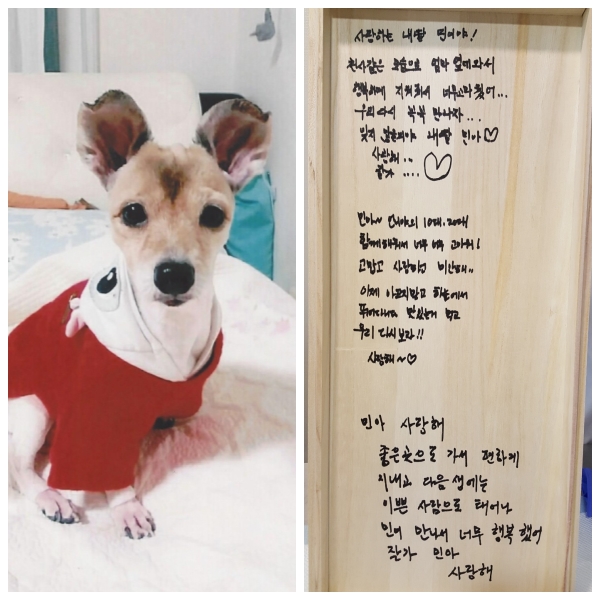 사랑하는 내딸 민아야!
천사같은 모습으로 엄마 옆에 와서
행복하게 지켜줘서 너무고마웠어...
우리 다시 꼭꼭 만나자...
잊지 말아야 내딸 민아♡
사랑해..
잘가 .... ♡
민아~ 언니의 10대, 20대
함께해줘서 너무 너무 고마워!
고맙고 사랑하고 미안해..
이제 아프지말고 하늘에서
맛있는거 먹고
우리 다시보자!!
사랑해~♡
민아 사랑해
좋은곳으로 가서 편하게
지내고 다음생에는
이쁜 사람으로 태어나
민아 만나서 너무 행복했어
잘가 민아
사랑해